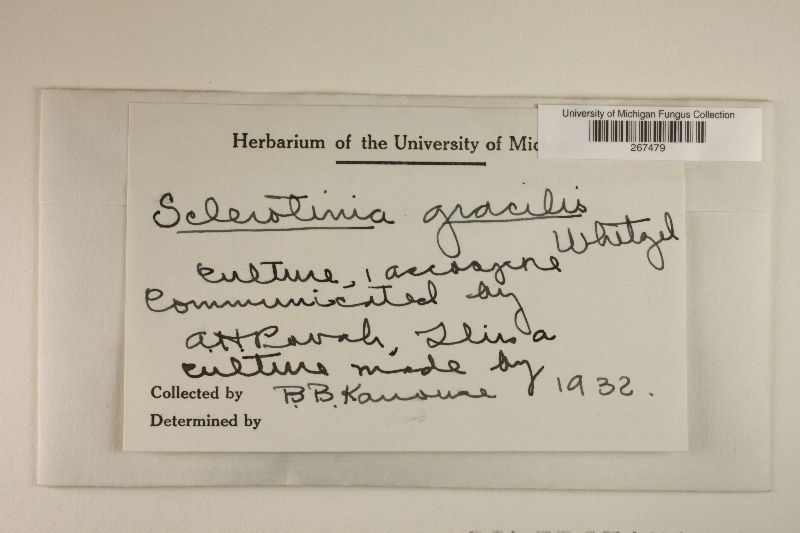 University of Michigan Fungus Collection
267479
Herbarium of the University of Mic
Sclerotinia gracilis
Whitzel
culture, 1 accospene
Communicated by
A.H. Povah, This a
culture made by
Collected by B.B. Kanouse 1932.
Determined by